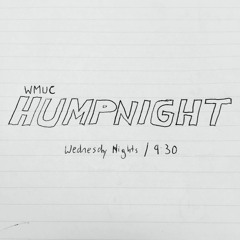 WMUC
HUMPNIGHT
Wednesdy Nights / 9:30